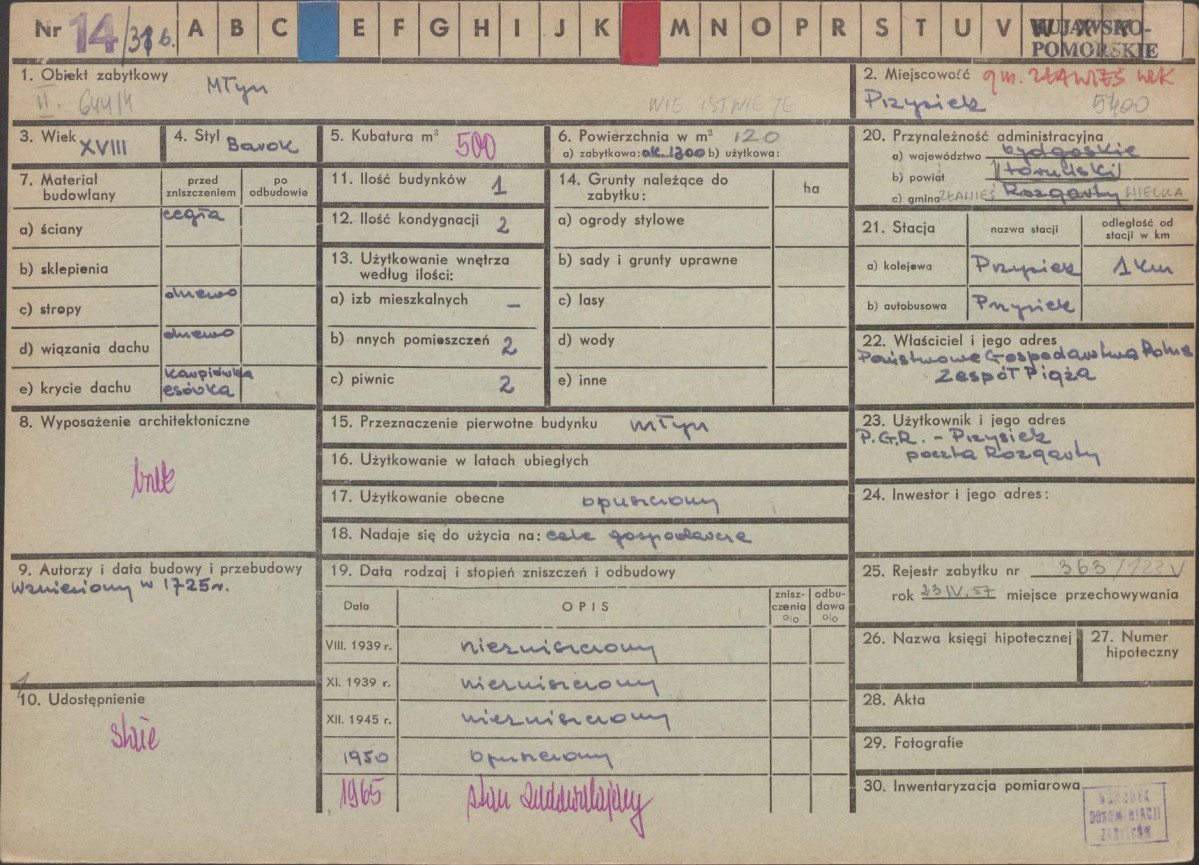 Nr 14 A B C E F G H I J K M N O P R S T U V
KUJAWSKO-
POMORSKIE
1. Obiekt zabytkowy
Młyn
II. 644/4
NIE ISTNIEJE
2. Miejscowość gm. ZŁAWIEŚ WLK
Przysiek 5400
3. Wiek XVIII
4. Styl Barok
5. Kubatura m³ 500
6. Powierzchnia w m² 120
a) zabytkowa: ok. 1300 b) użytkowa:
7. Materiał budowlany
przed zniszczeniem
po odbudowie
a) ściany cegła
b) sklepienia
c) stropy drewno
d) wiązania dachu drewno
e) krycie dachu karpiówka
esówka
8. Wyposażenie architektoniczne
brak
9. Autorzy i data budowy i przebudowy
Wzniesiony w 1725 r.
10. Udostępnienie
stałe
11. Ilość budynków 1
12. Ilość kondygnacji 2
13. Użytkowanie wnętrza
według ilości:
a) izb mieszkalnych –
b) nnych pomieszczeń 2
c) piwnic 2
14. Grunty należące do
zabytku:
ha
a) ogrody stylowe
b) sady i grunty uprawne
c) lasy
d) wody
e) inne
15. Przeznaczenie pierwotne budynku młyn
16. Użytkowanie w latach ubiegłych
17. Użytkowanie obecne opuszczony
18. Nadaje się do użycia na: cele gospodarcze
19. Data rodzaj i stopień zniszczeń i odbudowy
Data
OPIS
znisz-
czenia
%
odbu-
dowa
%
VIII. 1939 r. niezniszczony
XI. 1939 r. niezniszczony
XII. 1945 r. niezniszczony
1950 opuszczony
1965 stan zadowalający
20. Przynależność administracyjna
a) województwo bydgoskie
b) powiat toruński
c) gmina ZŁAWIEŚ Rozgarty WIELKA
21. Stacja
nazwa stacji
odległość od
stacji w km
a) kolejowa Przysiek 1 km
b) autobusowa Przysiek
22. Właściciel i jego adres
Państwowe Gospodarstwa Rolne
Zespół Pigża
23. Użytkownik i jego adres
P.G.R. – Przysiek
poczta Rozgarty
24. Inwestor i jego adres:
25. Rejestr zabytku nr 363/
rok 23 IV. 57 miejsce przechowywania
26. Nazwa księgi hipotecznej
27. Numer
hipoteczny
28. Akta
29. Fotografie
30. Inwentaryzacja pomiarowa
OŚRODEK
DOKUMENTACJI
ZABYTKÓW